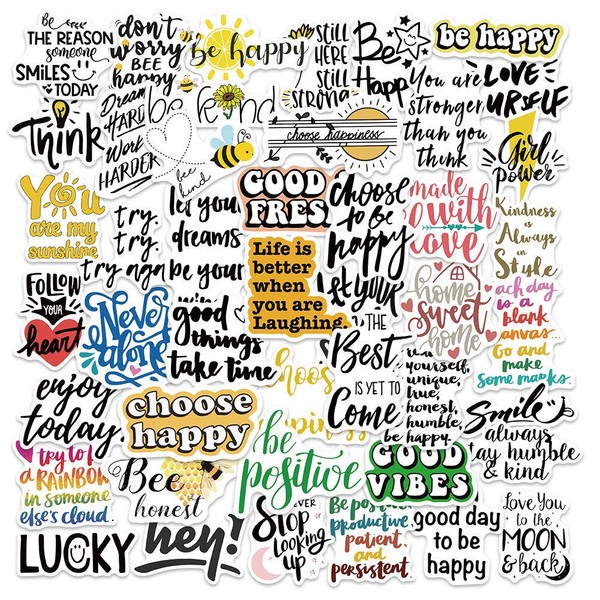 Be
THE REASON
someone
SMILES
TODAY
don't
worry
BEE
happy
be happy
still
HERE
still
strong
Be
Happy
be happy
Think
Dream
HARD
Work
HARDER
be kind
bee
kind
choose happiness
You are
stronger
than you
think
LOVE
URSELF
Girl
Power
You
are my
sunshine
try.
try.
try again
let your
dreams
be your
GOOD
FRES
choose
to be
happy
made
with
love
Kindness
is
Always
in
Style
Life is
better
when
you are
Laughing.
let your
FOLLOW
YOUR
heart
Never
alone
good
things
take time
THE
Best
IS YET TO
Come
home
sweet
home
each day
is a
blank
canvas...
Go and
make
some marks.
enjoy
today.
choose
happy
yourself,
unique,
true,
honest,
humble,
be happy.
Smile
always
stay humble
& kind
try to be
a RAINBOW
in someone
else's cloud.
Bee
honest
be
positive
GOOD
VIBES
LUCKY
hey!
Stop
looking
up
Be positive
productive
patient
and
persistent.
good day
to be
happy
Love You
to the
MOON
& back